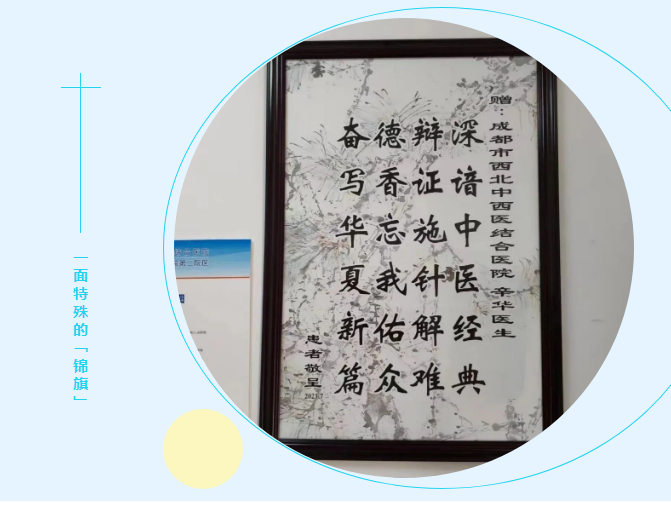 一面特殊的「锦旗」
赠：成都市西北中西医结合医院 辛华医生
深谙中医经典
辩证施针解难
德香忘我佑众
奋写华夏新篇
患者敬呈